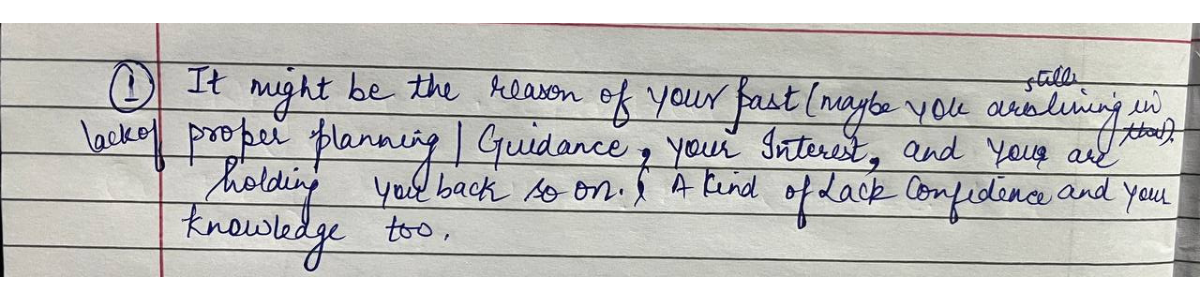 ① It might be the reason of your past (maybe you are still living in that).
lack of proper planning / Guidance, your Interest, and your are
holding your back so on. & A kind of Lack Confidence and your
knowledge too.